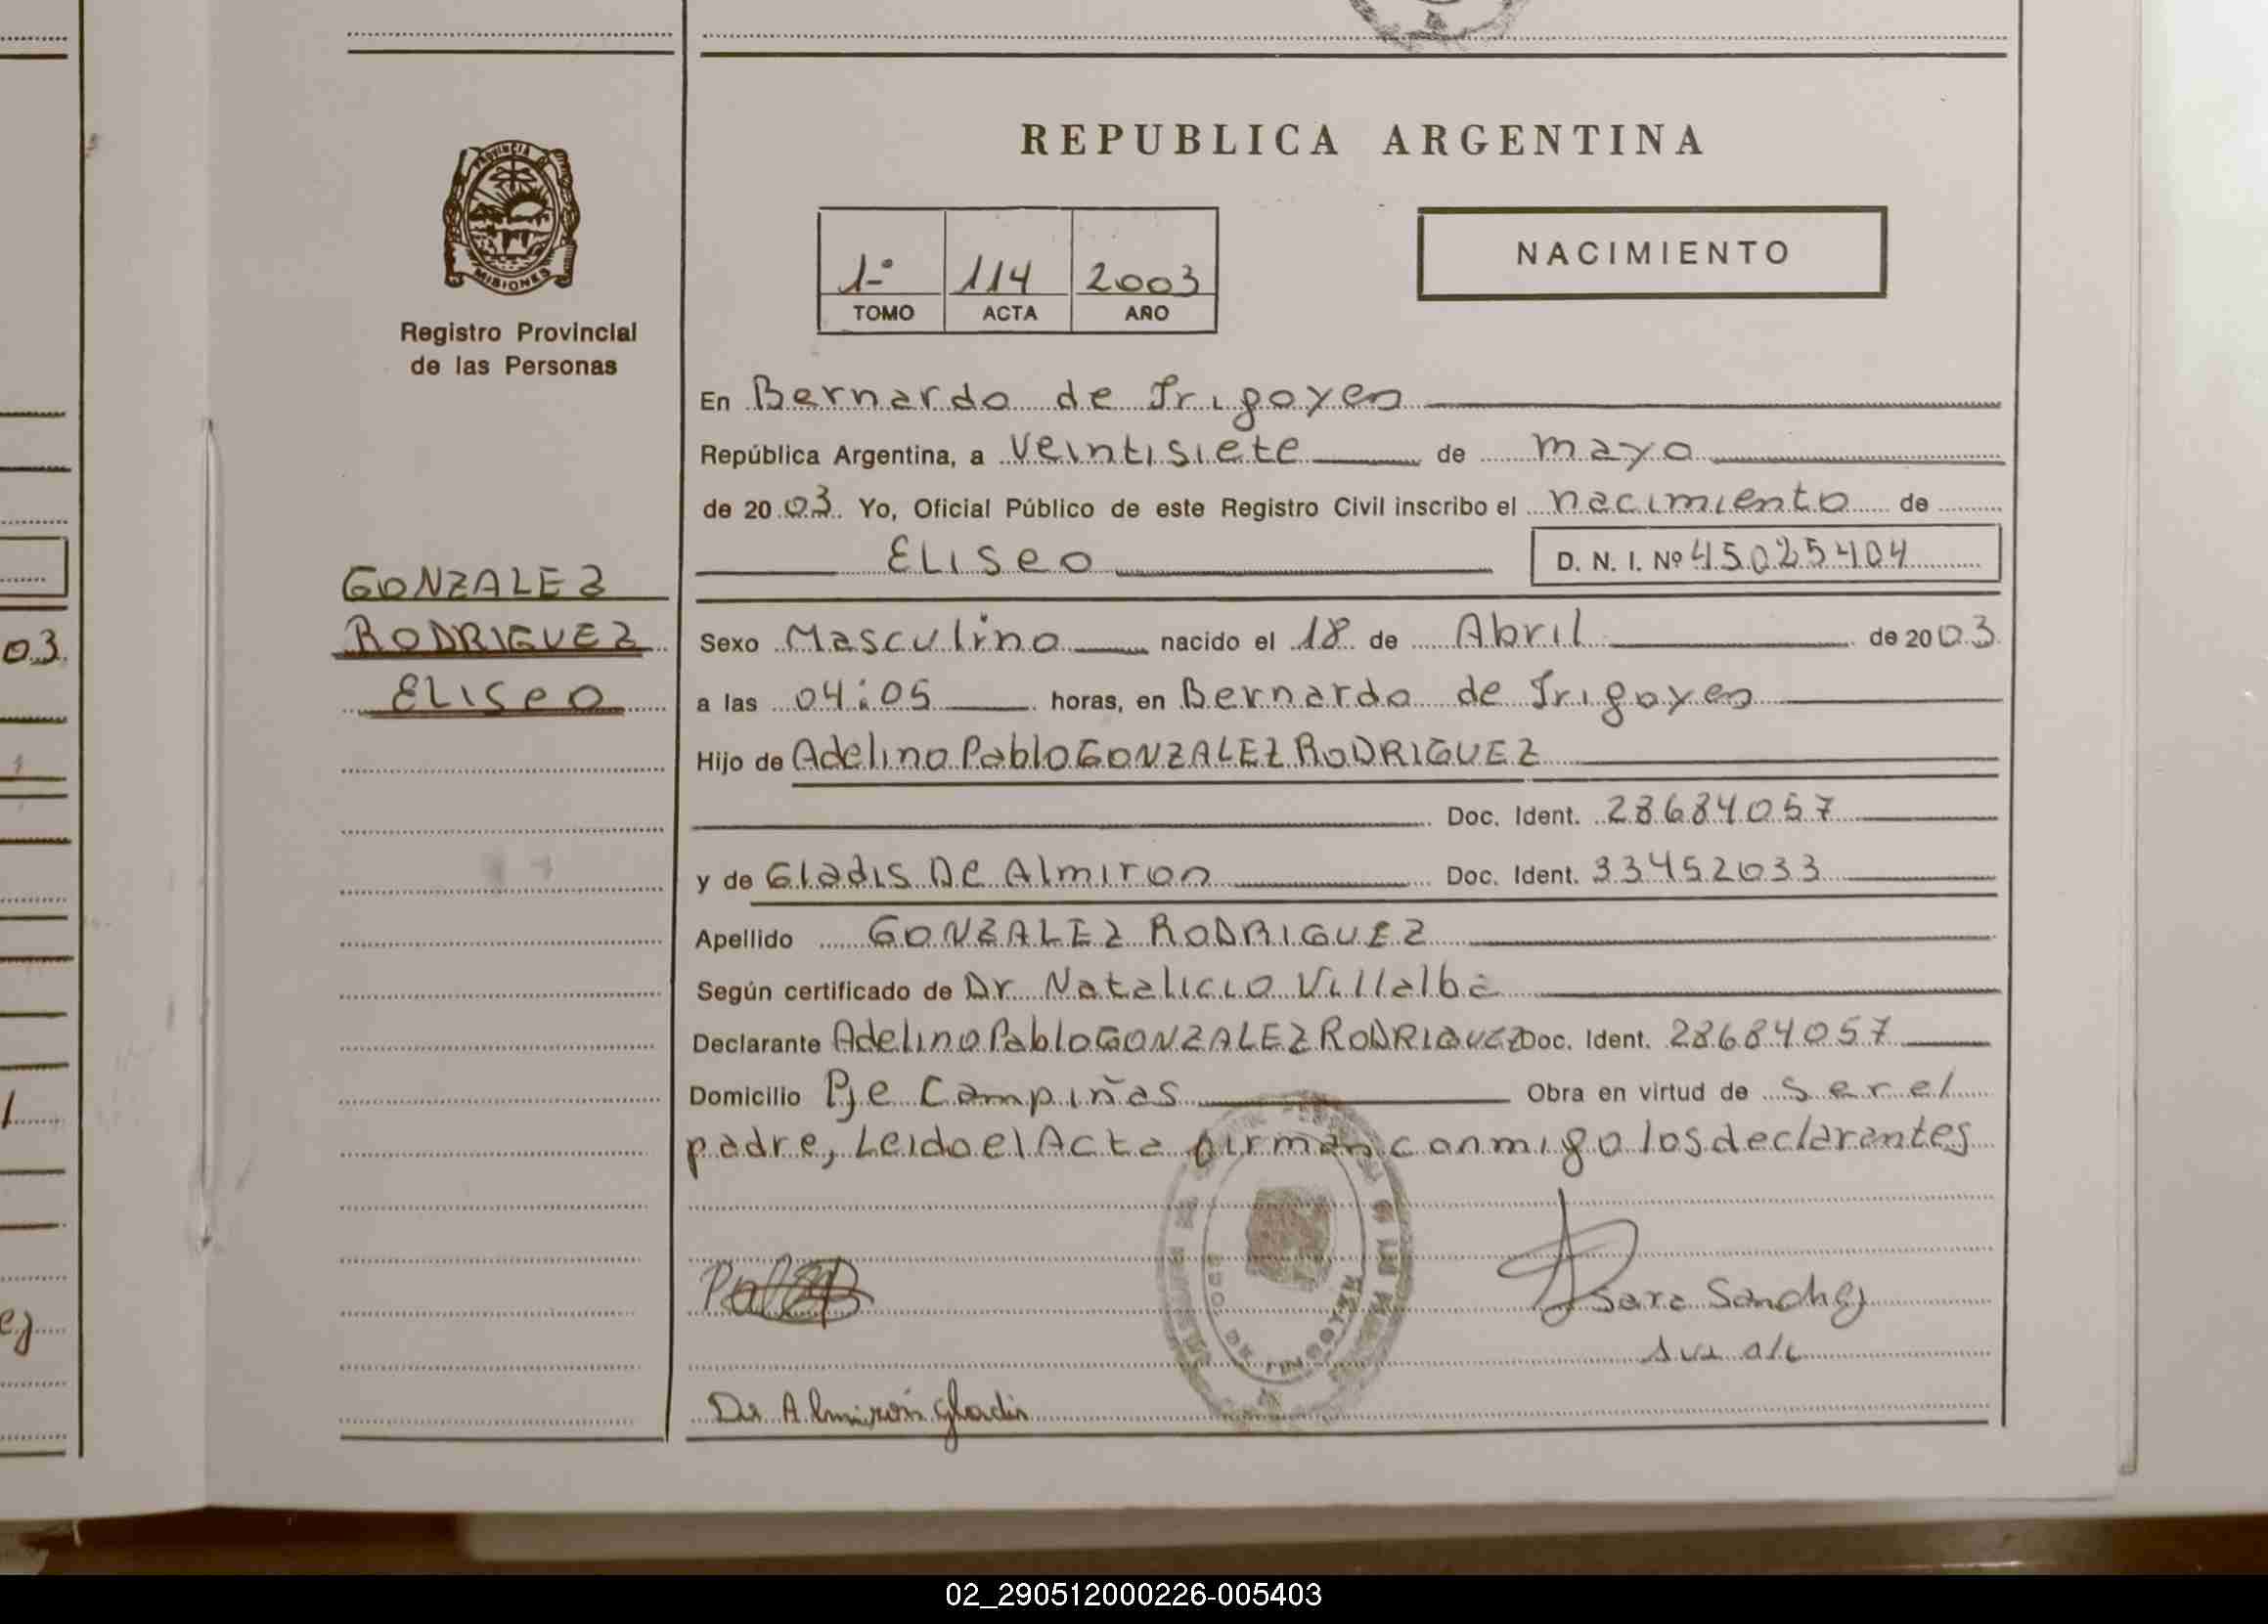 REPUBLICA ARGENTINA
PROVINCIA DE
MISIONES
Registro Provincial
de las Personas
1º 114 2003
TOMO ACTA AÑO
NACIMIENTO
En Bernardo de Irigoyen
República Argentina, a veintisiete de mayo
de 2003. Yo, Oficial Público de este Registro Civil inscribo el nacimiento de
ELISEO D. N. I. Nº 45025404
GONZALEZ
RODRIGUEZ
ELISEO
03
Sexo Masculino nacido el 18 de Abril de 2003
a las 04:05 horas, en Bernardo de Irigoyen
Hijo de Adelino Pablo GONZALEZ RODRIGUEZ
Doc. Ident. 28684057
y de Gladis De Almiron Doc. Ident. 33452033
Apellido GONZALEZ RODRIGUEZ
Según certificado de Dr Natalicio Villalba
Declarante Adelino Pablo GONZALEZ RODRIGUEZ Doc. Ident. 28684057
Domicilio Pje Campiñas Obra en virtud de ser el
padre, Leido el Acta firman conmigo los declarantes
Sara Sanchez
De Almirón Gladis
02_290512000226-005403